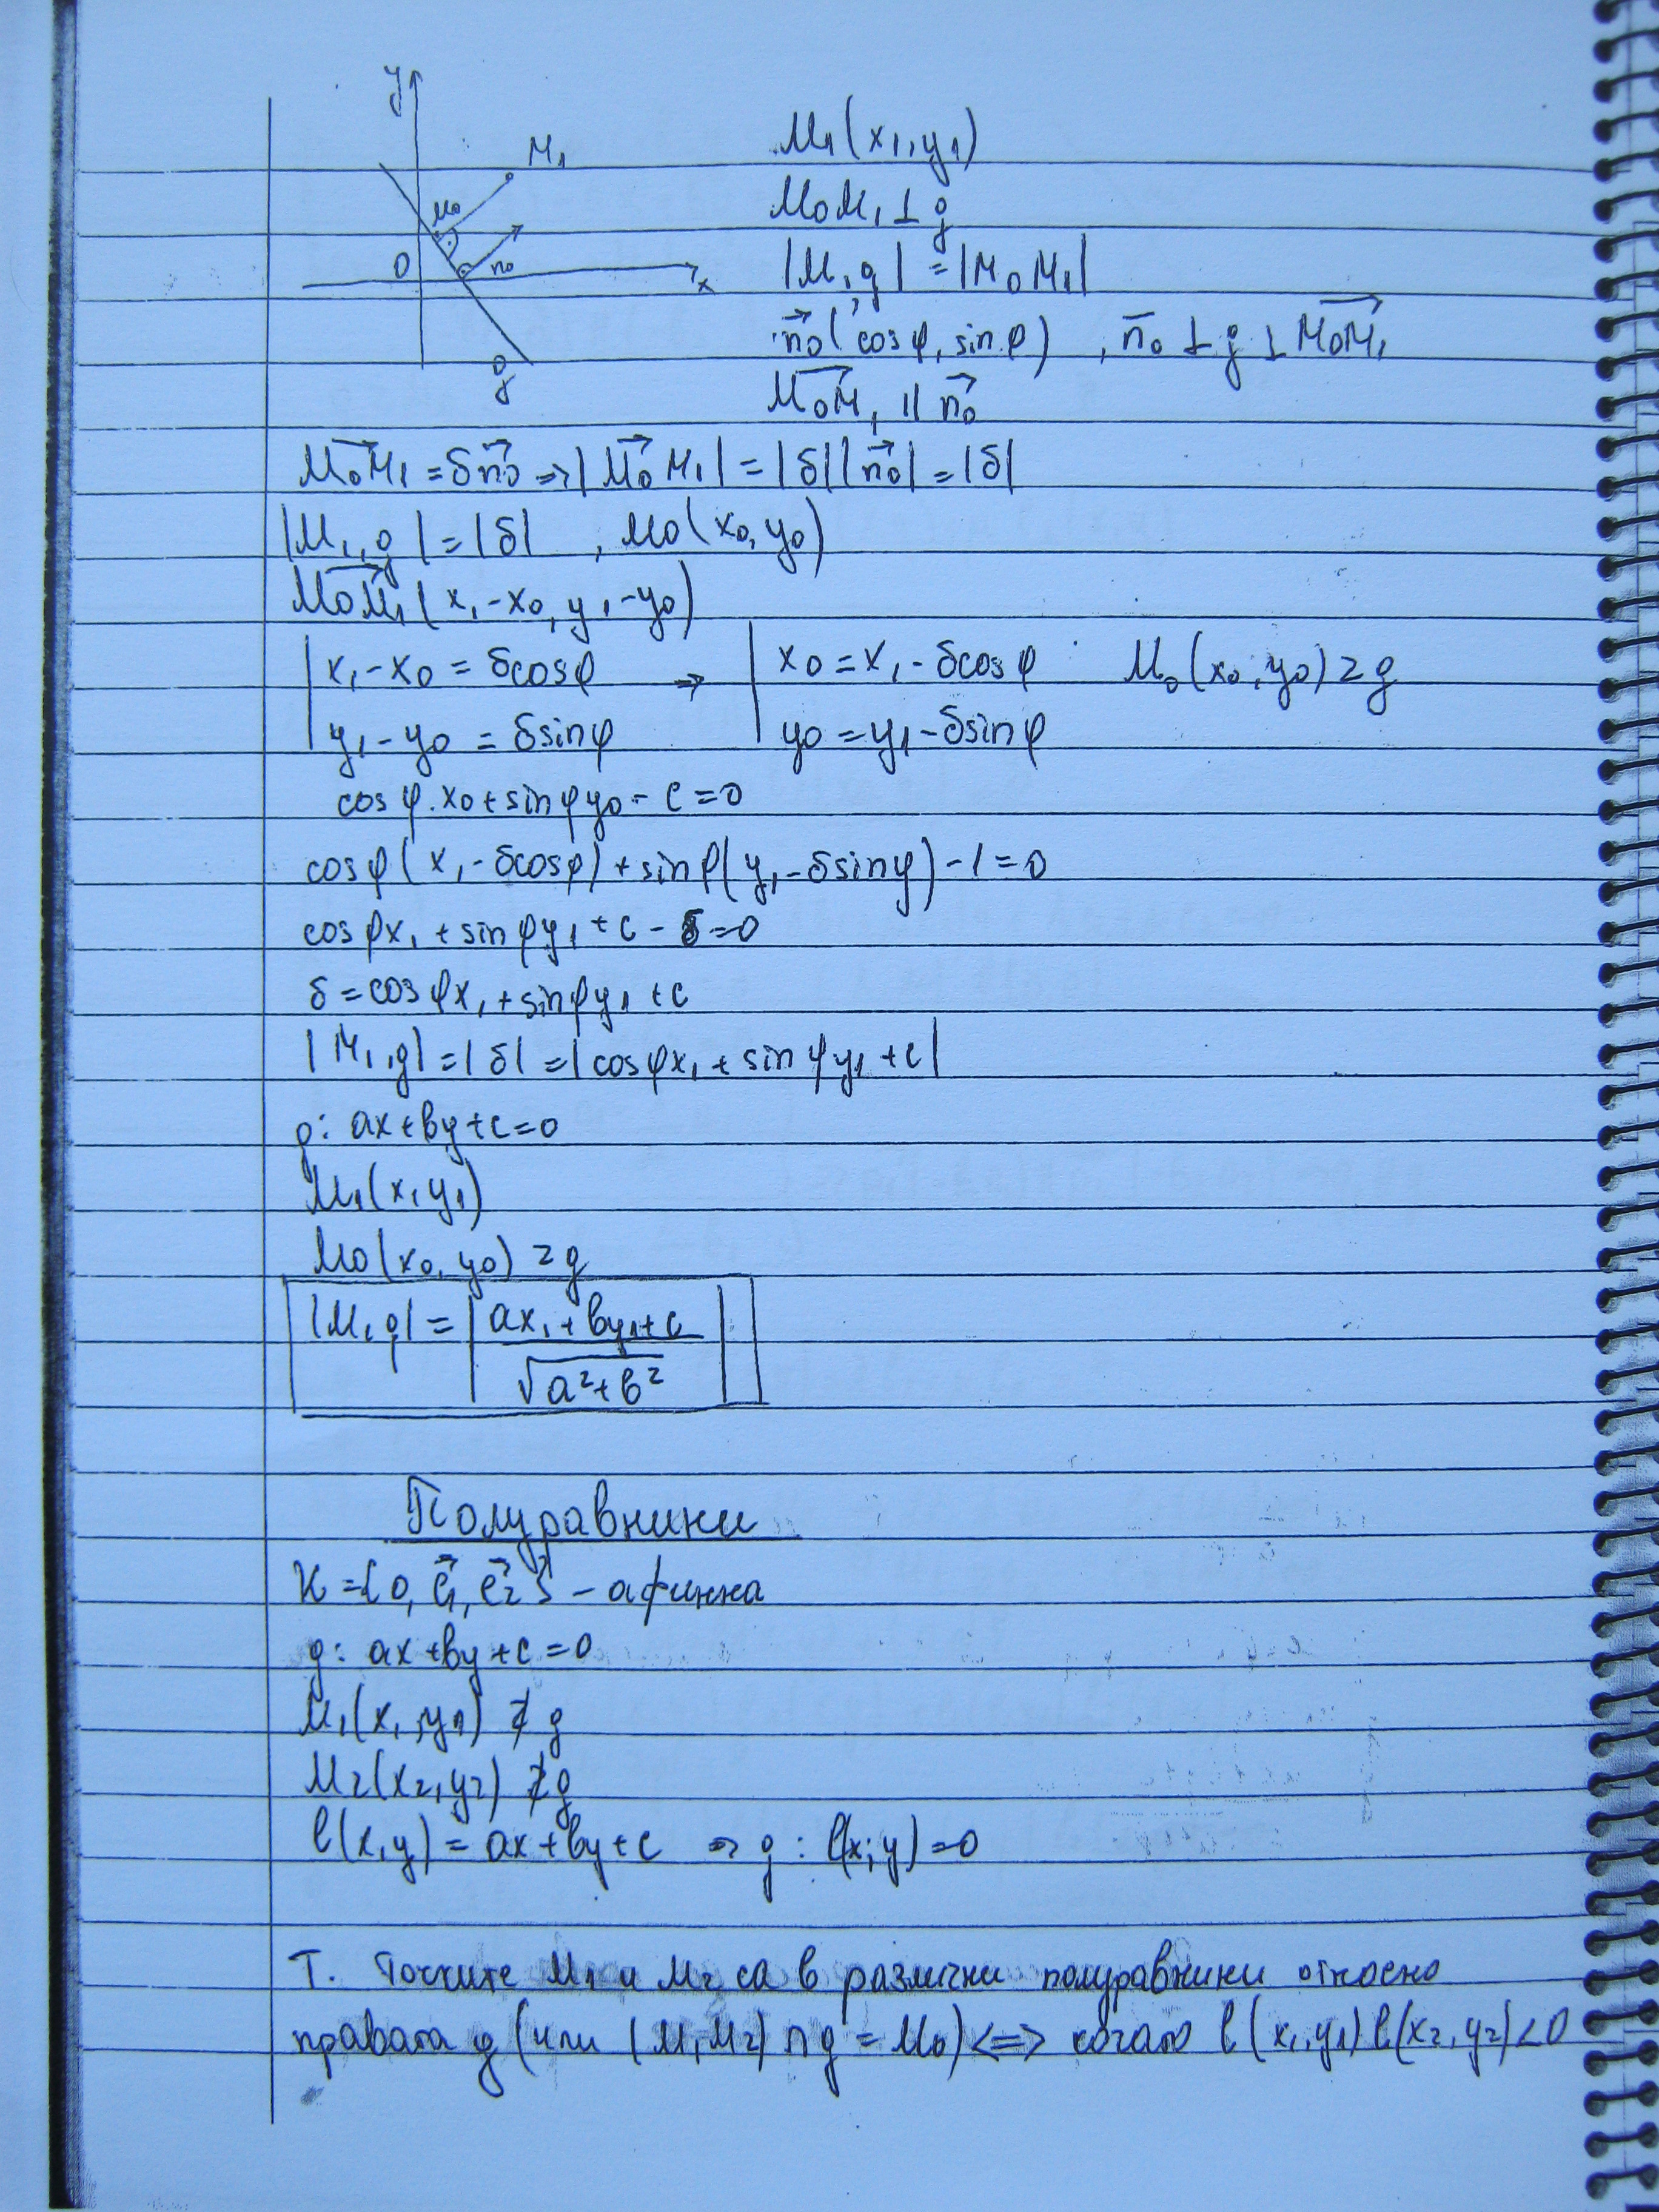 y
M₁
M₀
n₀
O
x
g
M₁(x₁,y₁)
M₀M₁ ⊥ g
|M₁,g| = |M₀M₁|
n₀→(cosφ, sinφ) , n̄₀ ⊥ g ⊥ M₀M₁→
M₀M₁→ || n₀→
M₀M₁→ = δn₀→ => |M₀M₁→| = |δ||n₀→| = |δ|
|M₁,g| = |δ| , M₀(x₀,y₀)
M₀M₁→(x₁-x₀, y₁-y₀)
| x₁-x₀ = δcosφ => | x₀ = x₁-δcosφ M₀(x₀,y₀) z g
| y₁-y₀ = δsinφ | y₀ = y₁-δsinφ
cosφ.x₀+sinφy₀- c=0
cosφ(x₁-δcosφ)+sinφ(y₁-δsinφ)-1=0
cosφx₁+sinφy₁+c-δ=0
δ=cosφx₁+sinφy₁+c
|M₁,g|=|δ|=|cosφx₁+sinφy₁+c|
g: ax+by+c=0
M₁(x₁y₁)
M₀(x₀,y₀) z g
|M₁g| = |(ax₁+by₁+c)/√(a²+b²)|
Полуравнини
K={0, e₁→, e₂→} - афинна
g: ax+by+c=0
M₁(x₁,y₁) ɀ g
M₂(x₂,y₂) ɀ g
l(x,y) = ax+by+c => g: l(x;y)=0
Т. Точките M₁ и M₂ са в различни полуравнини относно
правата g (или (M₁M₂) ∩ g = M₀) <=> когато l(x₁,y₁)l(x₂,y₂)<0